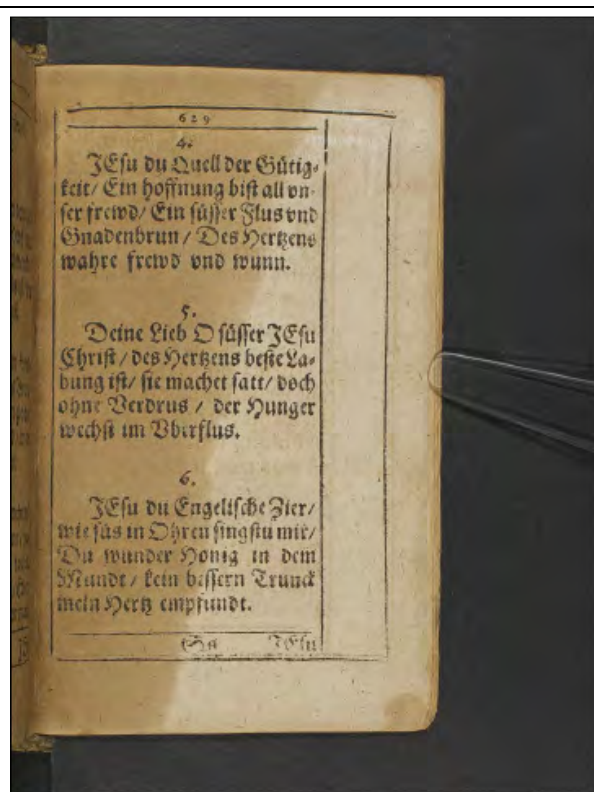 629
4.
JEsu du Quell der Gütig-
keit/ Ein hoffnung bist all vn-
ser frewd/ Ein süsser Flus vnd
Gnadenbrun / Des Hertzens
wahre frewd vnd wunn.
5.
Deine Lieb O süsser JEsu
Christ / des Hertzens beste La-
bung ist/ sie machet satt/ doch
ohne Verdrus / der Hunger
wechst im Vberflus.
6.
JEsu du Engelische Zier/
wie süs in Ohren singstu mir/
Du wunder Honig in dem
Mundt / kein bessern Trunck
mein Hertz empfundt.
JEsu